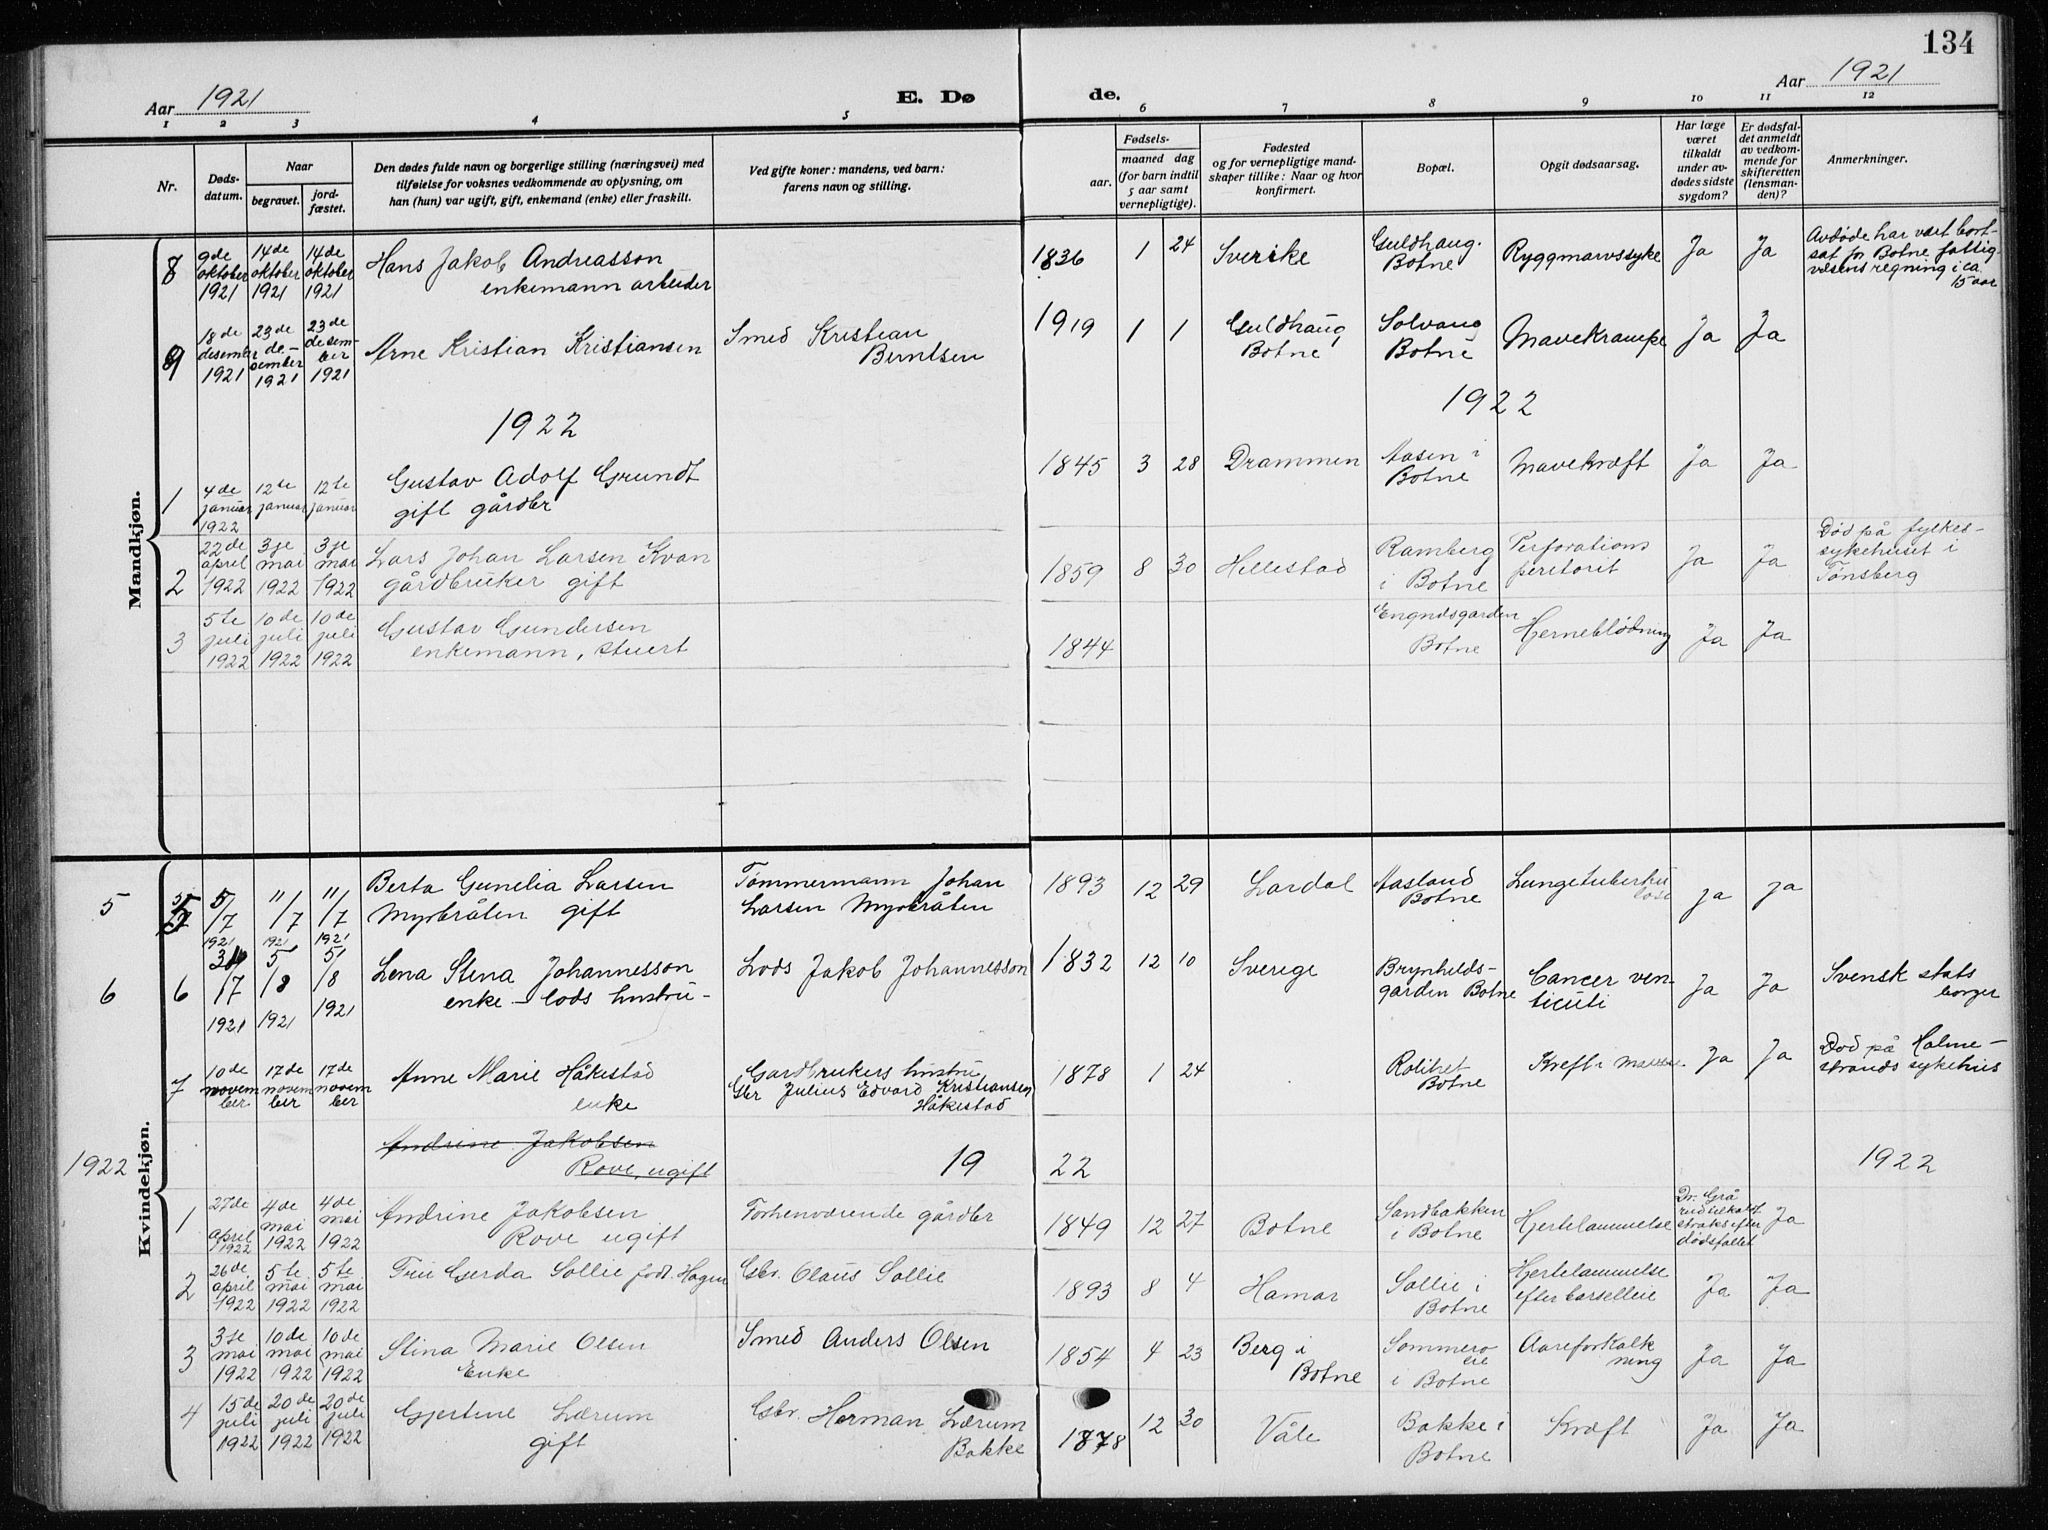 134
Aar 1921
E. Dø
de.
Aar 1921
1 2 3 4 5 6 7 8 9 10 11 12
Nr.
Døds-
datum.
Naar
begravet.
jord-
fæstet.
Den dødes fulde navn og borgerlige stilling (næringsvei) med
tilføielse for voksnes vedkommende av oplysning, om
han (hun) var ugift, gift, enkemand (enke) eller fraskilt.
Ved gifte koner: mandens, ved barn:
farens navn og stilling.
Fødsels-
aar.
maaned dag
(for barn indtil
5 aar samt
vernepligtige).
Fødested
og for vernepligtige mand-
skaper tillike: Naar og hvor
konfirmert.
Bopæl.
Opgit dødsaarsag.
Har læge
været
tilkaldt
under av-
dødes sidste
sygdom?
Er dødsfal-
det anmeldt
av vedkom-
mende for
skifteretten
(lensman-
den)?
Anmerkninger.
Mandkjøn.
8
9de
oktober
1921
14de
oktober
1921
14de
oktober
1921
Hans Jakob Andreasson
enkemann arbeider
1836 1 24
Sverike
Guldhaug.
Botne
Ryggmarvssyke
Ja
Ja
Avdøde har vært bort-
sat for Botne fattig-
vesens regning i ca.
15 aar
9
18de
desember
1921
23de
de-
sember
1921
23de
desem-
ber
1921
Arne Kristian Kristiansen
Smed Kristian
Berntsen
1919 1 1
Guldhaug
Botne
Solvang
Botne
Mavekrampe
Ja
Ja
1922
1922
1
4de
januar
1922
12te
januar
12te
januar
Gustav Adolf Grundt
gift gårdbr
1845 3 28
Drammen
Aasen i
Botne
Mavekræft
Ja
Ja
2
22de
april
1922
3je
mai
1922
3je
mai
1922
Lars Johan Larsen Kvan
gårdbruker gift
1859 8 30
Hillestad
Ramberg
i Botne
Perforations
peritorit
Ja
Ja
Død på fylkes-
sykehuset i
Tønsberg
3
5te
juli
1922
10de
juli
1922
10de
juli
1922
Gustav Gundersen
enkemann, stuert
1844
Botne
Hjerneblødning
Ja
Ja
Kvindekjøn.
5
5
5/7
1921
11/7
1921
11/7
1921
Berta Gunelia Larsen
Myrbråten gift
Tømmermann Johan
Larsen Myrbråten
1893 12 29
Lardal
Aasland
Botne
Lungetuberku
lose
Ja
ja
6
6
31/7
1921
5/8
1921
5/8
1921
Lena Stina Johannesson
enke - lods hustru -
Lods Jakob Johannesson
1832 12 10
Sverige
Brynhelds-
garden Botne
Cancer ven-
ticuli
Ja
Ja
Svensk stats
borger
7
10de
novem
ber
17de
novem
ber
17de
novem
ber
Anne Marie Håkestad
enke
Gardbrukers hustru
Gbr Julius Edvard Kristiansen
Håkestad
1878 1 24
Rolihet
Botne
Kreft i maven
Ja
Ja
Død på Holme-
strands sykehus
Andrine Jakobsen
Rove, ugift
1922
19
22
1922
1
27de
april
1922
4de
mai
1922
4de
mai
1922
Andrine Jakobsen
Rove ugift
Forhenværende gårdbr
1849 12 27
Botne
Sandbakken
i Botne
Hjertelammelse
Dr. Grå
rud tilkaldt
straks efter
dødsfallet
Ja
2
26de
april
1922
5te
mai
1922
5te
mai
1922
Fru Gerda Sollie født Hagen
Gbr. Olaus Sollie
1893 8 4
Hamar
Sollie i
Botne
Hjertelammelse
efter barselleie
Ja
Ja
3
3je
mai
1922
10de
mai
1922
10de
mai
1922
Stina Marie Olsen
Enke
Smed Anders Olsen
1854 4 23
Berg i
Botne
i Botne
Aareforkalk
ning
Ja
Ja
4
15de
juli
1922
20de
juli
1922
20de
juli
1922
Gjertine Lærum
gift
Gbr. Herman Lærum
Bakke
1878 12 30
Våle
Bakke i
Botne
Kræft
Ja
Ja